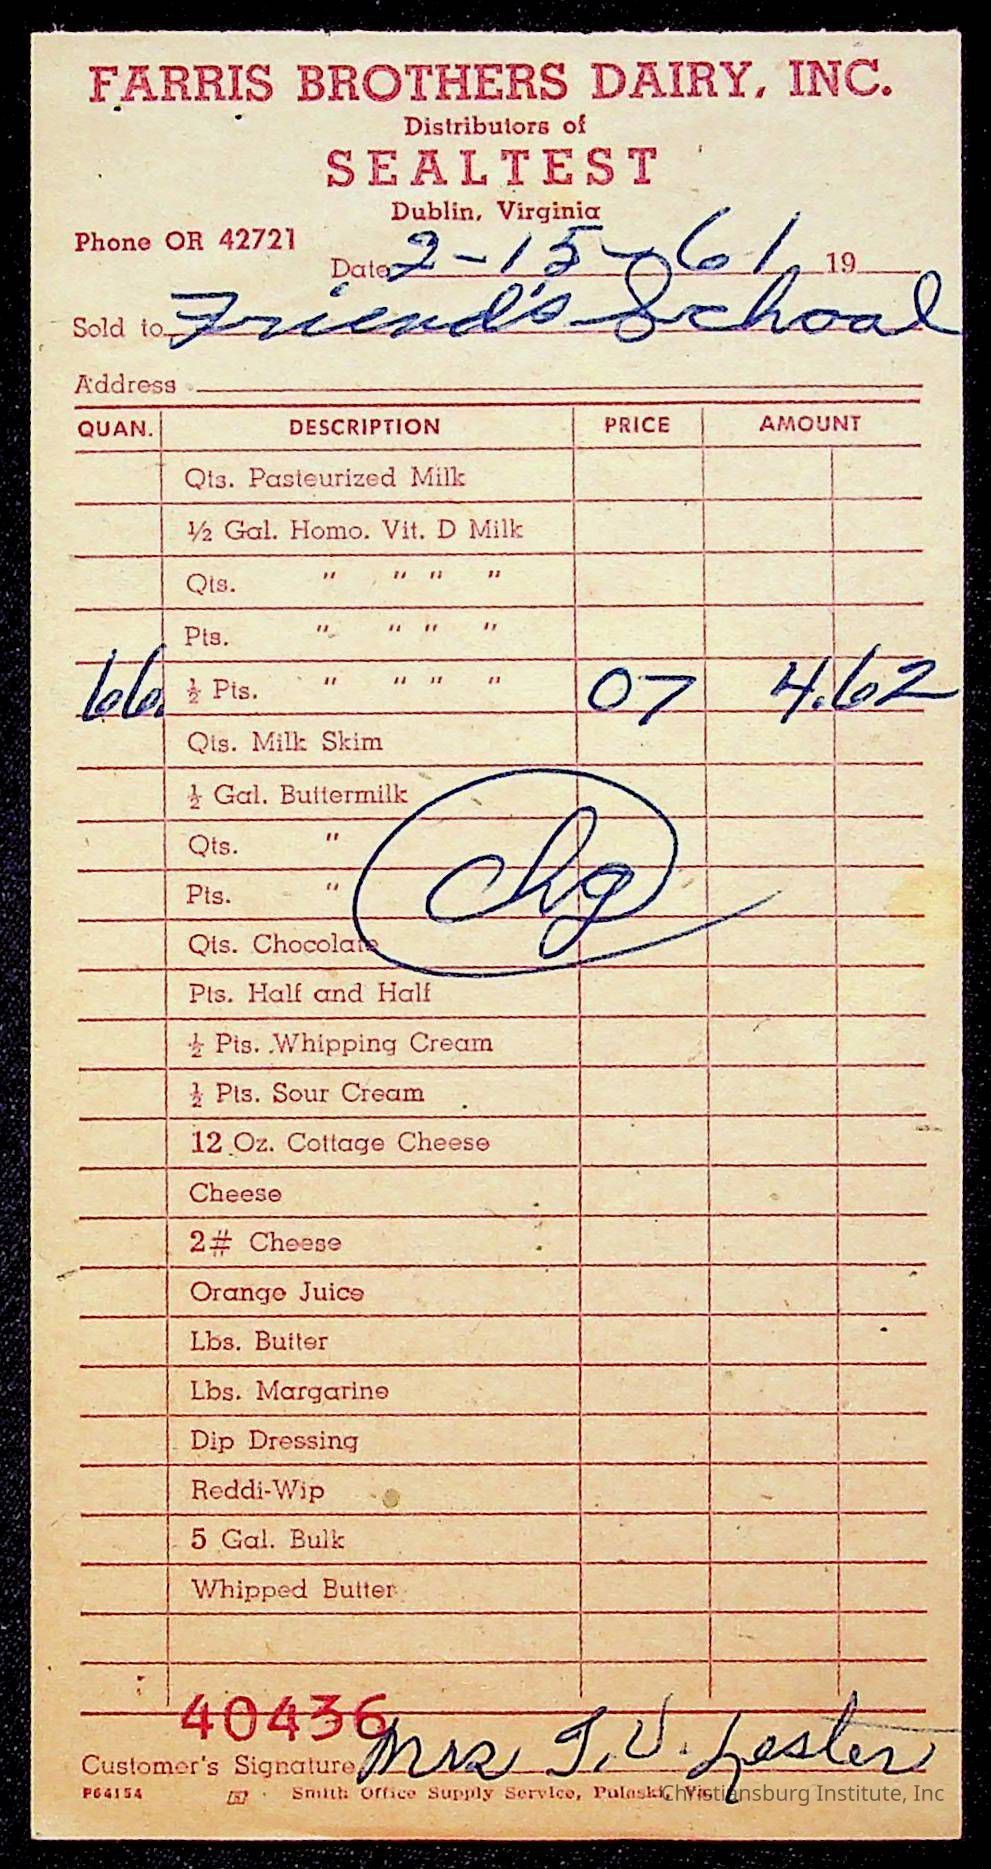 FARRIS BROTHERS DAIRY, INC.
Distributors of
SEALTEST
Dublin, Virginia
Phone OR 42721
Date 2-15-61 19
Sold to Friend's School
Address
QUAN. DESCRIPTION PRICE AMOUNT
Qts. Pasteurized Milk
½ Gal. Homo. Vit. D Milk
Qts. " " " "
Pts. " " " "
66 ½ Pts. " " " " 07 4.62
Qts. Milk Skim
½ Gal. Buttermilk
Qts. "
chg
Pts. "
Qts. Chocolate
Pts. Half and Half
½ Pts. Whipping Cream
½ Pts. Sour Cream
12 Oz. Cottage Cheese
Cheese
2# Cheese
Orange Juice
Lbs. Butter
Lbs. Margarine
Dip Dressing
Reddi-Wip
5 Gal. Bulk
Whipped Butter
40436
Customer's Signature Mrs T. U. Lester
P64154 Smith Office Supply Service, Pulaski,
Christiansburg Institute, Inc